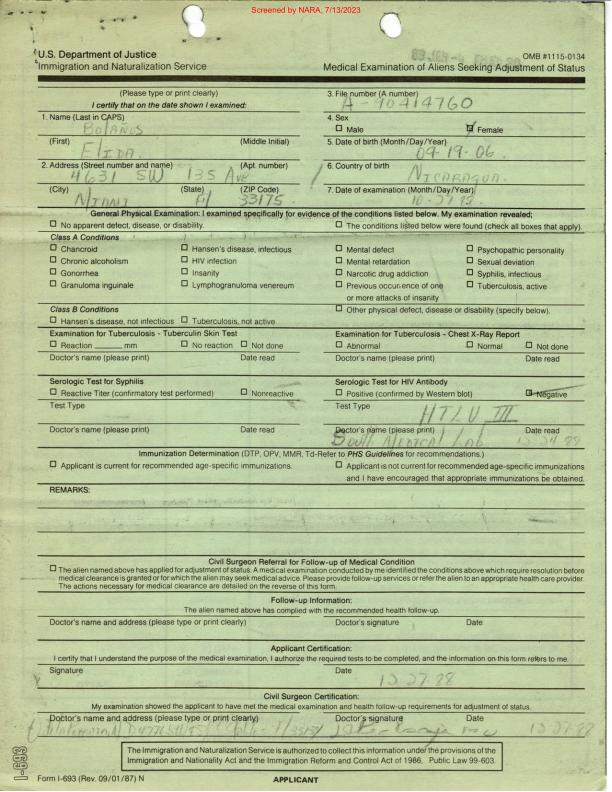 Screened by NARA, 7/13/2023
U.S. Department of Justice
Immigration and Naturalization Service
OMB #1115-0134
Medical Examination of Aliens Seeking Adjustment of Status
(Please type or print clearly)
I certify that on the date shown I examined:
3. File number (A number)
A-90414760
1. Name (Last in CAPS)
Bolaños
4. Sex
☐ Male ☒ Female
(First) (Middle Initial)
Elida.
5. Date of birth (Month/Day/Year)
09-19-06.
2. Address (Street number and name) (Apt. number)
4631 SW 135 Ave
6. Country of birth
Nicaragua.
(City) (State) (ZIP Code)
Miami Fl 33175.
7. Date of examination (Month/Day/Year)
General Physical Examination: I examined specifically for evidence of the conditions listed below. My examination revealed;
☐ No apparent defect, disease, or disability. ☐ The conditions listed below were found (check all boxes that apply).
Class A Conditions
☐ Chancroid ☐ Hansen's disease, infectious ☐ Mental defect ☐ Psychopathic personality
☐ Chronic alcoholism ☐ HIV infection ☐ Mental retardation ☐ Sexual deviation
☐ Gonorrhea ☐ Insanity ☐ Narcotic drug addiction ☐ Syphilis, infectious
☐ Granuloma inguinale ☐ Lymphogranuloma venereum ☐ Previous occurrence of one ☐ Tuberculosis, active
or more attacks of insanity
Class B Conditions
☐ Other physical defect, disease or disability (specify below).
☐ Hansen's disease, not infectious ☐ Tuberculosis, not active
Examination for Tuberculosis - Tuberculin Skin Test
☐ Reaction ____ mm ☐ No reaction ☐ Not done
Doctor's name (please print) Date read
Examination for Tuberculosis - Chest X-Ray Report
☐ Abnormal ☐ Normal ☐ Not done
Doctor's name (please print) Date read
Serologic Test for Syphilis
☐ Reactive Titer (confirmatory test performed) ☐ Nonreactive
Test Type
Doctor's name (please print) Date read
Serologic Test for HIV Antibody
☐ Positive (confirmed by Western blot) ☒ Negative
Test Type
HTLV III
Doctor's name (please print) Date read
South Medical Lab
Immunization Determination (DTP, OPV, MMR, Td-Refer to PHS Guidelines for recommendations.)
☐ Applicant is current for recommended age-specific immunizations. ☐ Applicant is not current for recommended age-specific immunizations
and I have encouraged that appropriate immunizations be obtained.
REMARKS:
Civil Surgeon Referral for Follow-up of Medical Condition
☐ The alien named above has applied for adjustment of status. A medical examination conducted by me identified the conditions above which require resolution before
medical clearance is granted or for which the alien may seek medical advice. Please provide follow-up services or refer the alien to an appropriate health care provider.
The actions necessary for medical clearance are detailed on the reverse of this form.
Follow-up Information:
The alien named above has complied with the recommended health follow-up.
Doctor's name and address (please type or print clearly) Doctor's signature Date
Applicant Certification:
I certify that I understand the purpose of the medical examination, I authorize the required tests to be completed, and the information on this form refers to me.
Signature Date
Civil Surgeon Certification:
My examination showed the applicant to have met the medical examination and health follow-up requirements for adjustment of status.
Doctor's name and address (please type or print clearly) Doctor's signature Date
The Immigration and Naturalization Service is authorized to collect this information under the provisions of the
Immigration and Nationality Act and the Immigration Reform and Control Act of 1986, Public Law 99-603.
I-693
Form I-693 (Rev. 09/01/87) N
APPLICANT